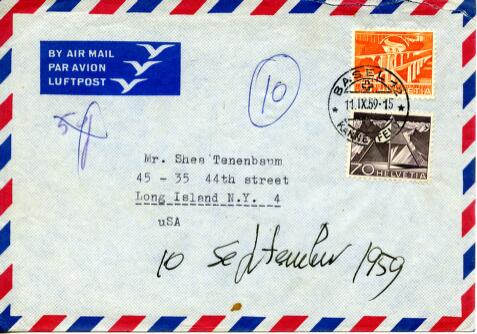 BY AIR MAIL
PAR AVION
LUFTPOST
10
BASEL 12
11.IX.59-15
KANNENFELD
HELVETIA
70 HELVETIA
Mr. Shea Tenenbaum
45 - 35 44th street
Long Island N.Y. 4
uSA
10 September 1959